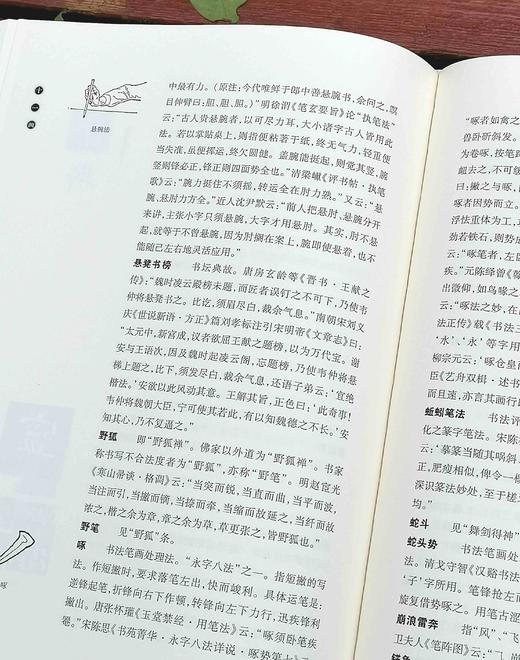 十一画
悬腕法
中最有力。（原注：今代唯鲜于郎中善悬腕书，余问之，瞑
目伸臂曰：胆、胆、胆。）”明徐渭《笔玄要旨》论“执笔法”
云：“古人贵悬腕者，以可尽力耳，大小诸字古人皆用此
法。若以掌贴桌上，则指便粘著于纸，终无气力，轻重便
当失准，虽便挥运，终欠圆健。盖腕能挺起，则觉其竖，腕
竖则锋必正，锋正则四面势全也。”清梁巘《评书帖·执笔
歌》云：“腕力挺住不须摇，转运全在肘力熟。”又云：“悬
腕、悬肘力方全。”近人沈尹默云：“前人把悬肘、悬腕分开
来讲，主张小字只须悬腕，大字才用悬肘。其实，肘不悬
起，就等于不曾悬腕，因为肘搁在案上，腕即使悬着，也不
能随己左右地灵活应用。”
悬凳书榜 书坛典故。唐房玄龄等《晋书·王献之
传》：“魏时凌云殿榜未题，而匠者误钉之不可下，乃使韦
仲将悬凳书之。比讫，须眉尽白，裁余气息。”南朝宋刘义
庆《世说新语·方正》篇刘孝标注引宋明帝《文章志》曰：
“太元中，新宫成，议者欲屈王献之题榜，以为万代宝。谢
安与王语次，因及魏时起凌云阁，忘题榜，乃使韦仲将悬
梯上题之，比下，须发尽白，裁余气息，还语子弟云：‘宜绝
楷法。’安欲以此风动其意。王解其旨，正色曰：‘此奇事！
韦仲将魏朝大臣，宁可使其若此，有以知魏德之不长。’安
知其心，乃不复逼之。”
野狐 即“野狐禅”。佛家以外道为“野狐禅”。书家
称书写不合法度者为“野狐”，亦称“野笔”。明赵宧光
《寒山帚谈·格调》云：“当突而锐，当直而曲，当平而波，
当注而引，当撇而镝，当捺而牵，当缩而故延之，当纤而故
浓之，楷之余为章，章之余为草，草更张之，皆野狐也。”
野笔 见“野狐”条。
啄 书法笔画处理法。“永字八法”之一。指短撇的写
法。作短撇时，要求落笔左出，快而峻利。具体运笔是：
逆锋起笔，折锋向右下作顿，转锋向左下力行，迅疾锋利
撇出。唐张怀瓘《玉堂禁经·用笔法》云：“啄须卧笔疾
罨。”宋陈思《书苑菁华·永字八法详说·啄势第七》云
啄
“啄者如禽之
兽卧斫斜发。
为卷啄，按笔
曰：撇之与啄，
啄者因势而立。
浮怯重体为工，
劲若铁石，则势
云：“啄笔者，左
疾。”元陈绎曾《
出微仰，如鸟啄之
云：“啄法之妙，在
法正传》载《书法三
‘水’、‘永’等字用
柳宗元云：‘啄仓皇而
臣《艺舟双楫·述书
而且速，亦言其画行
蚯蚓笔法 书法评
化之篆字笔法。宋陈
云：“摹篆当随其㖞斜、
正，肥瘦相似，俾令一样
深识篆法妙处，至于槎
均。”
蛇斗 见“舞剑得神”
蛇头势 书法笔画处
法。清戈守智《汉谿书法
‘子’字所用。笔锋抢左而
旋复借势啄之。用笔古涩
崩浪雷奔 指“风”、“飞
卫夫人《笔阵图》云：“